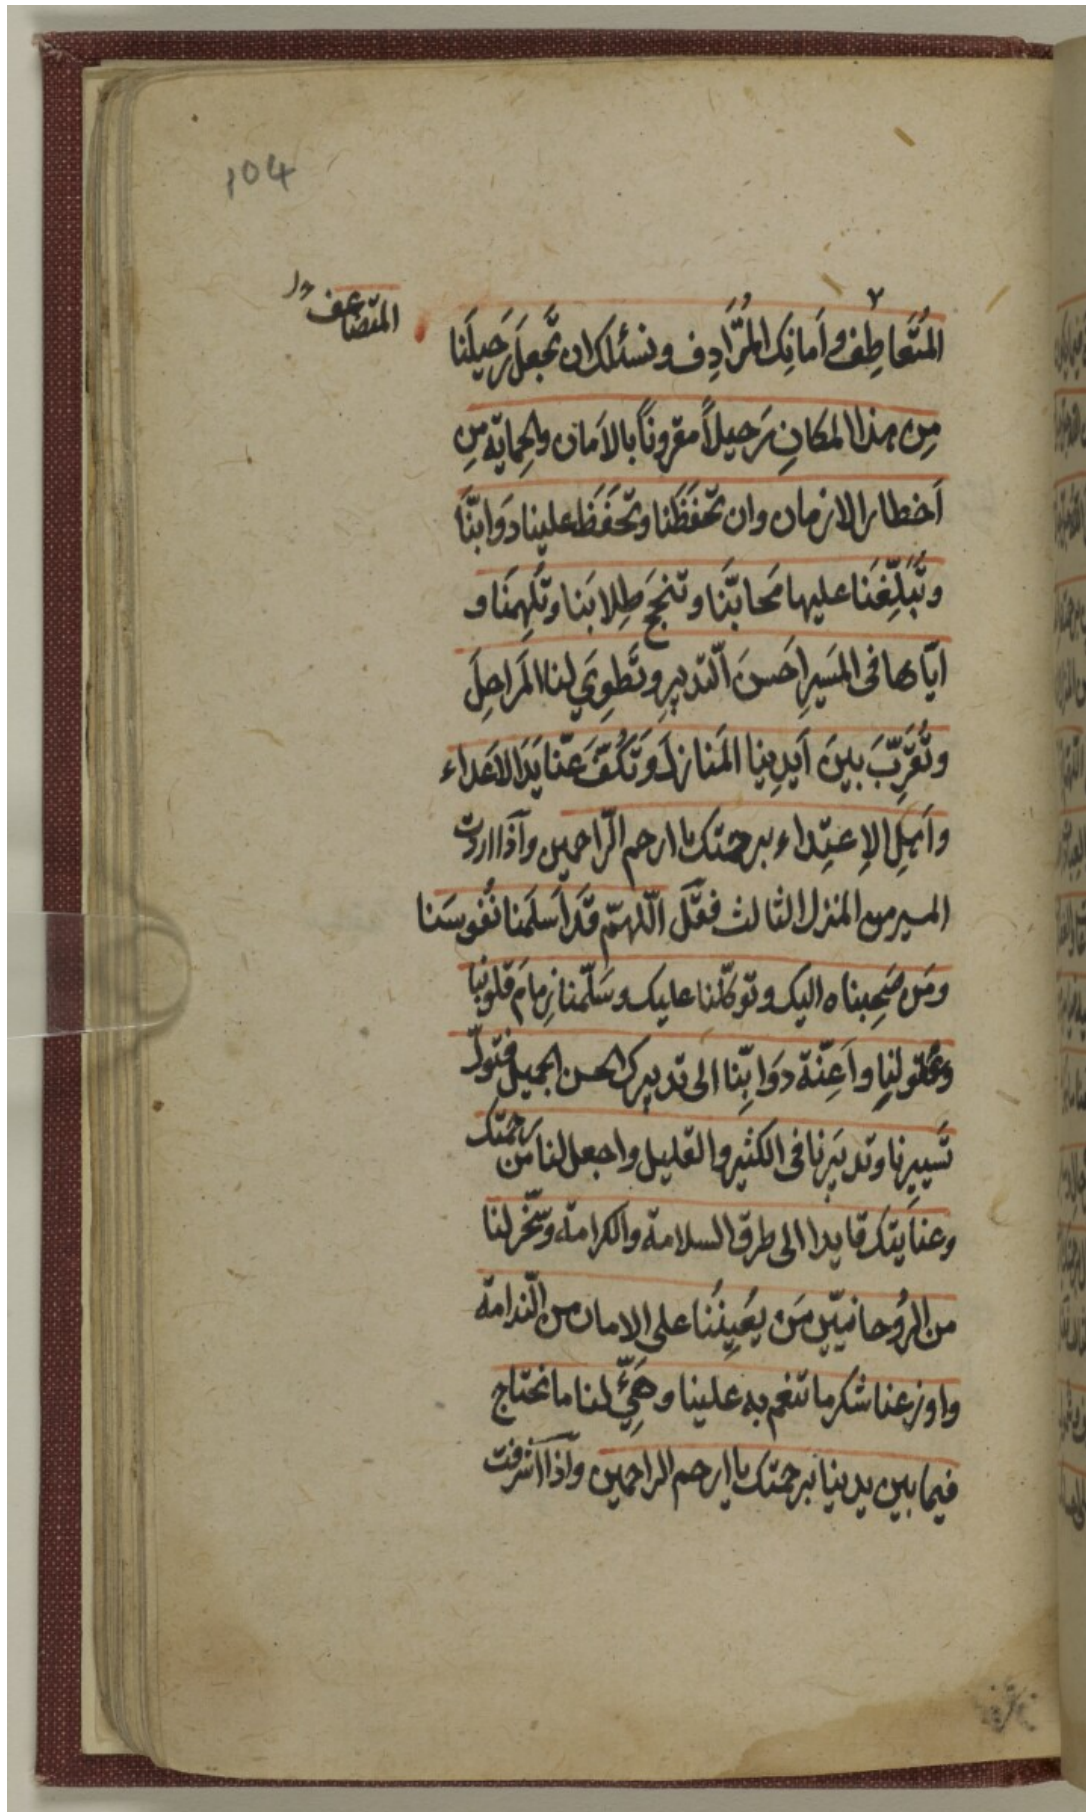 104
المتضاعف
المُتَعاطِف واَمانِك المُتَرادِف ونسئلك ان تَجعَلَ رَحيلَنا
مِن هذا المكانِ رَحيلاً مقروناً بالاَمان والحِماية مِن
اَخطار الازمان وان تحفَظَنا وتحفَظَ علينا دَوابَّنا
وتُبَلِّغَنا عليها مَحابَّنا وتنجحَ طِلابَنا وتُلهِمَنا و
ايّاها فى المَسيرِ اَحسَنَ التّدبيرِ وتَطوِيَ لنا المَراحِلَ
وتُقَرِّبَ بينَ اَيدِينا المَنازِلَ وَتَكُفَّ عَنّا يَدَ الاَعداء
واَهلِ الاِعتِداء برحمتك يا ارحم الرّاحمين وآذا اردت
المسير من المنزل الثالث فقُل اللّهمّ قَد اَسلَمنا نُفوسَنا
ومَن صَحِبناه اليك وتوكّلنا عليك وسَلّمنا زِمامَ قلوبنا
وعُقولنا واَعِنّة دَوابِّنا الى تدبيرك الحسن الجميل فتولّ
تَسييرنا وتدبيرنا فى الكثير والقليل واجعل لنا من رحمتك
وعنايتك قايدا الى طرق السلامة والكرامة وسخّر لنا
من الرُوحانيّين مَن يُعينُنا على الامان من النّدامة
واوزعنا شكر ما تنعم به علينا وهَيّئ لنا ما نحتاج
فيما بين يدينا برحمتك يا ارحم الراحمين وآذا اشرفت